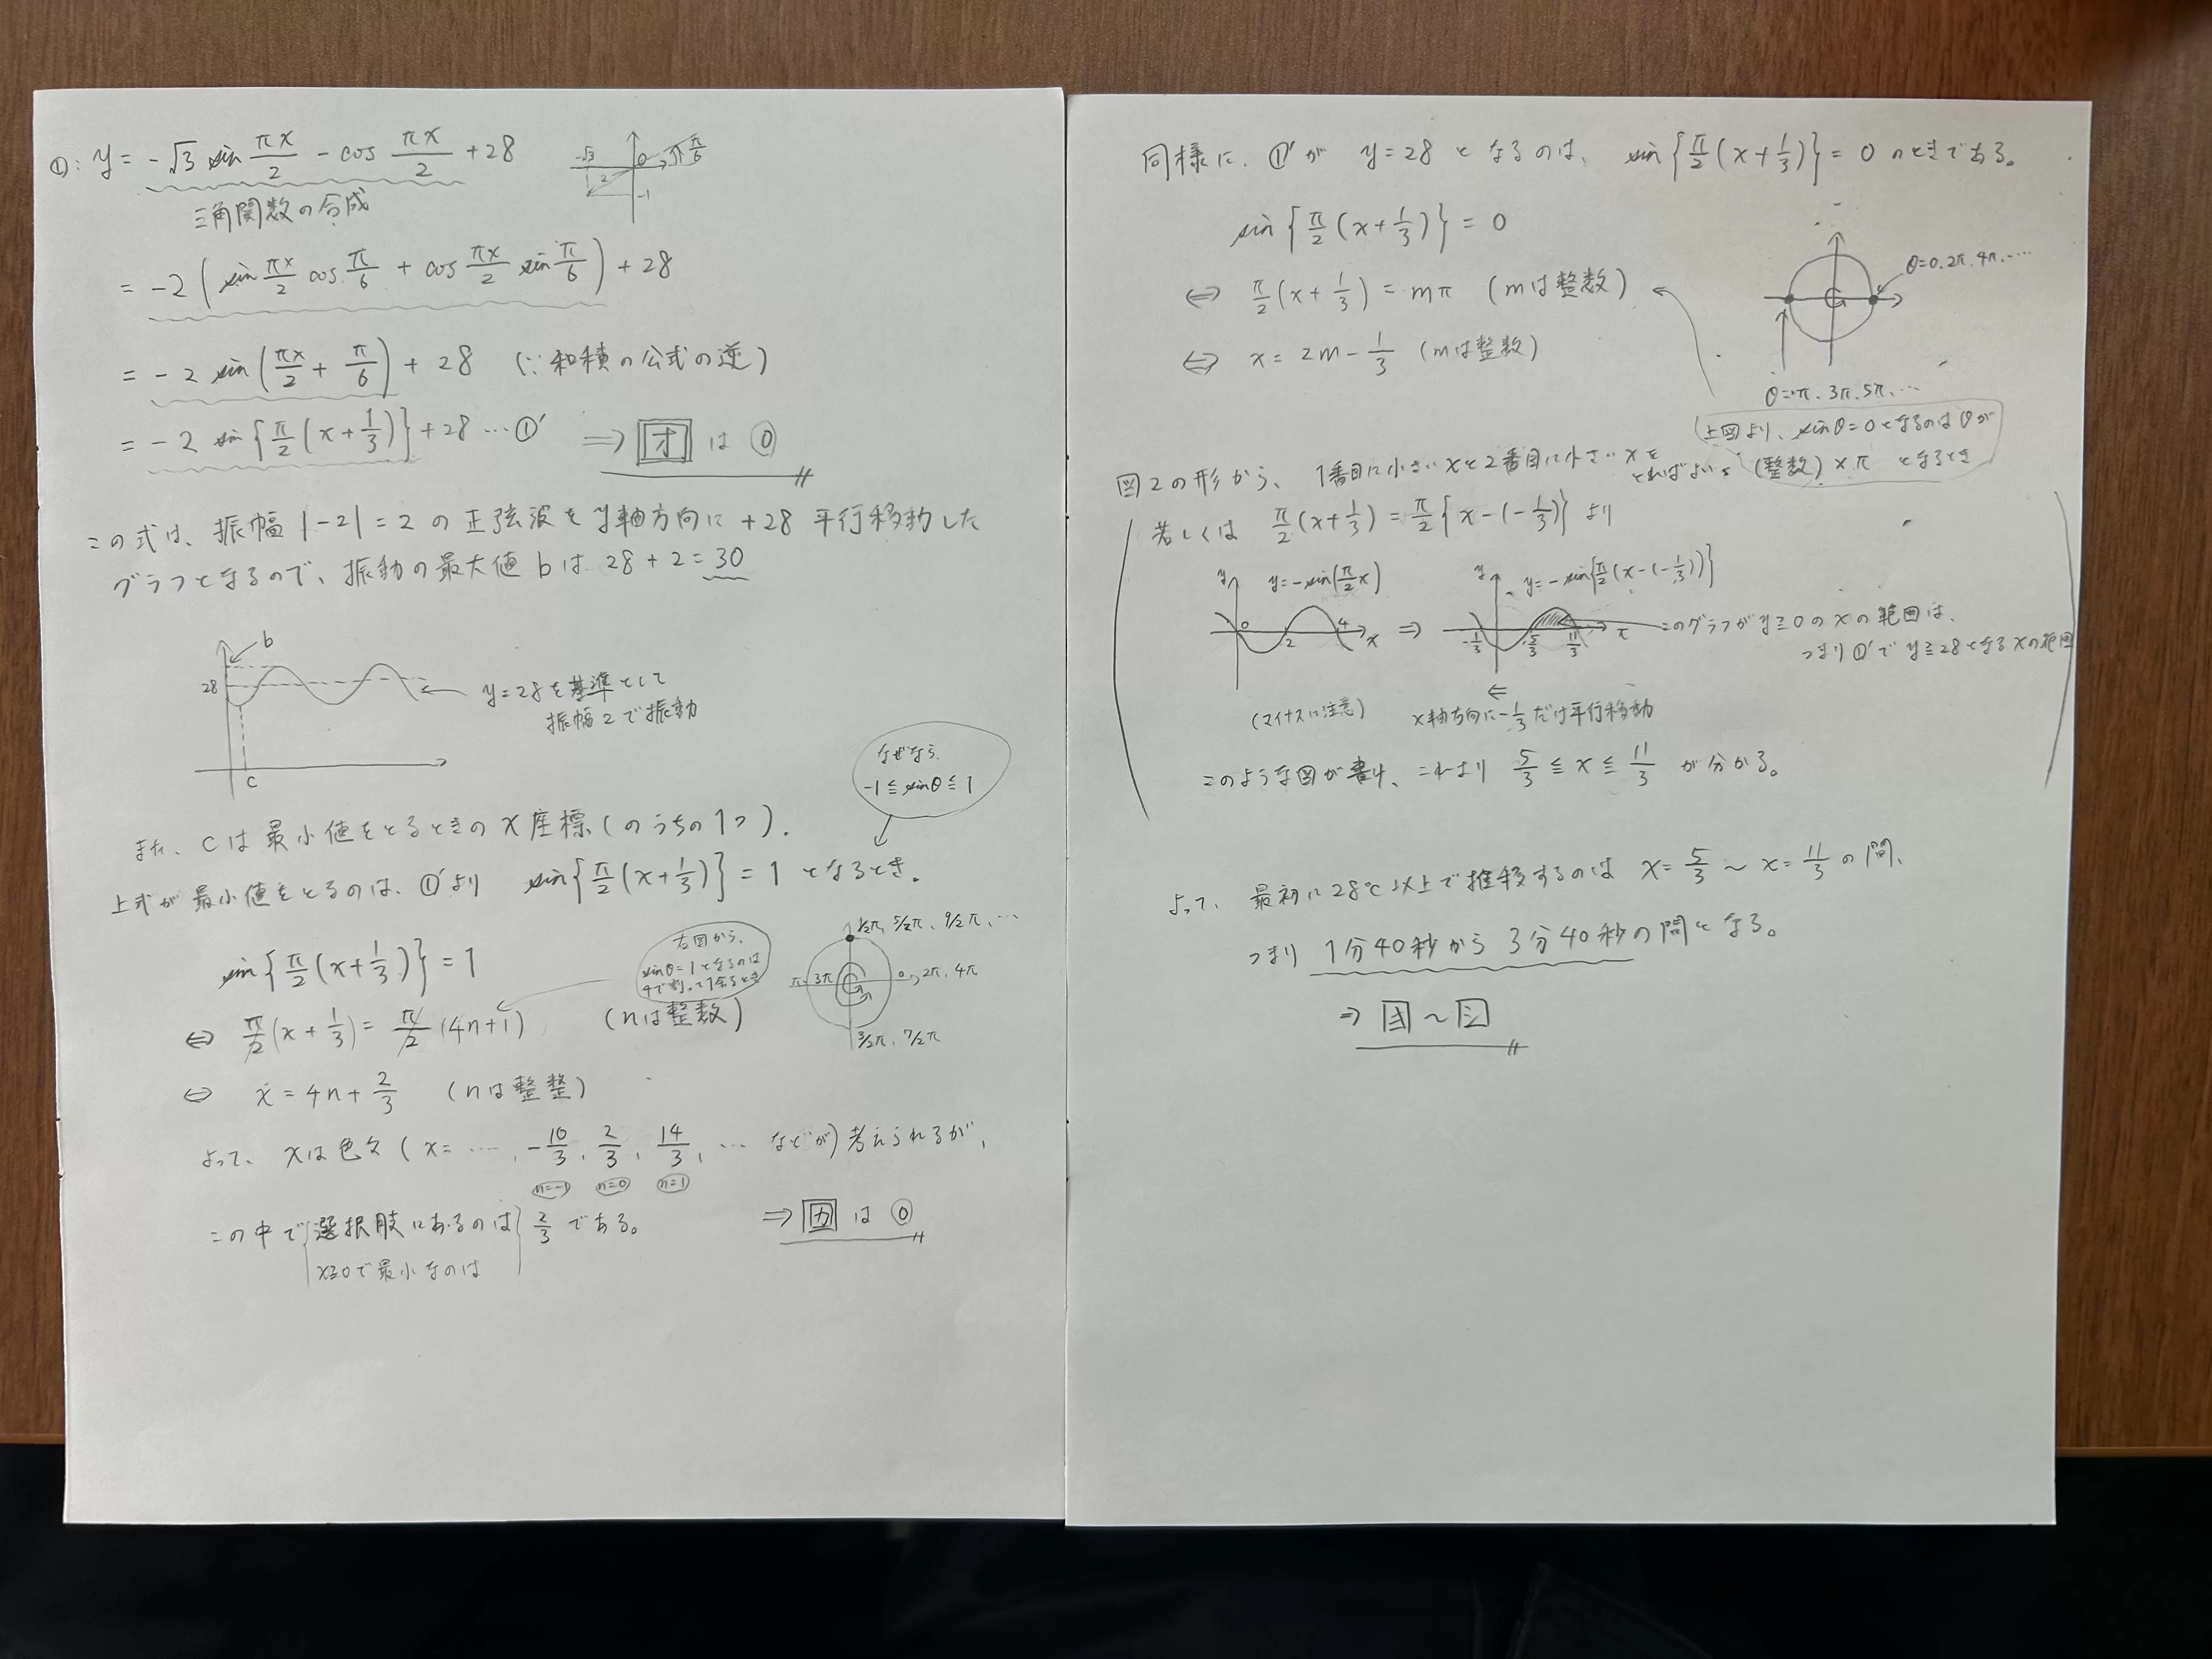 ①: y = -√3 sin πx/2 - cos πx/2 + 28
-√3
O
π/6
2
-1
三角関数の合成
= -2 ( sin πx/2 cos π/6 + cos πx/2 sin π/6 ) + 28
= -2 sin ( πx/2 + π/6 ) + 28 (∵ 和積の公式の逆)
= -2 sin { π/2 ( x + 1/3 ) } + 28 … ①' ⇒ オ は ⓪
この式は、振幅 |-2| = 2 の正弦波を y軸方向に +28 平行移動した
グラフとなるので、振動の最大値 b は 28 + 2 = 30
b
28
y=28を基準として
振幅2で振動
c
なぜなら、
-1 ≦ sinθ ≦ 1
また、cは最小値をとるときのx座標(のうちの1つ).
上式が最小値をとるのは、①'より sin { π/2 ( x + 1/3 ) } = 1 となるとき。
sin { π/2 ( x + 1/3 ) } = 1
右図から、
sinθ=1となるのは
4で割って1余るとき
1/2π, 5/2π, 9/2π, …
π, 3π
0, 2π, 4π
3/2π, 7/2π
⇔ π/2 ( x + 1/3 ) = π/2 (4n+1) (nは整数)
⇔ x = 4n + 2/3 (nは整整)
よって、xは色々 ( x = …, -10/3, 2/3, 14/3, … などが) 考えられるが、
n=-1 n=0 n=1
この中で 選択肢にあるのは 2/3 である。 ⇒ カ は ⓪
x≧0で最小なのは
同様に、①'が y=28 となるのは、 sin { π/2 ( x + 1/3 ) } = 0 のときである。
sin { π/2 ( x + 1/3 ) } = 0
⇔ π/2 ( x + 1/3 ) = mπ (mは整数)
⇔ x = 2m - 1/3 (mは整数)
θ=0, 2π, 4π, …
θ=π, 3π, 5π, …
上図より、sinθ=0となるのはθが
(整数)×π となるとき
図2の形から、1番目に小さいxと2番目に小さいxを
とればよい。
若しくは π/2 ( x + 1/3 ) = π/2 { x - (-1/3) } より
y y = -sin(π/2 x)
O 2 4 x
⇒
y y = -sin{π/2 (x-(-1/3))}
-1/3 5/3 11/3 x
このグラフが y≧0 の x の範囲は、
つまり①'で y≧28 となる x の範囲
(マイナスに注意)
⇐
x軸方向に -1/3 だけ平行移動
このような図が書け、これより 5/3 ≦ x ≦ 11/3 が分かる。
よって、最初に28℃以上で推移するのは x = 5/3 ~ x = 11/3 の間、
つまり 1分40秒から 3分40秒の間となる。
⇒ キ ~ シ